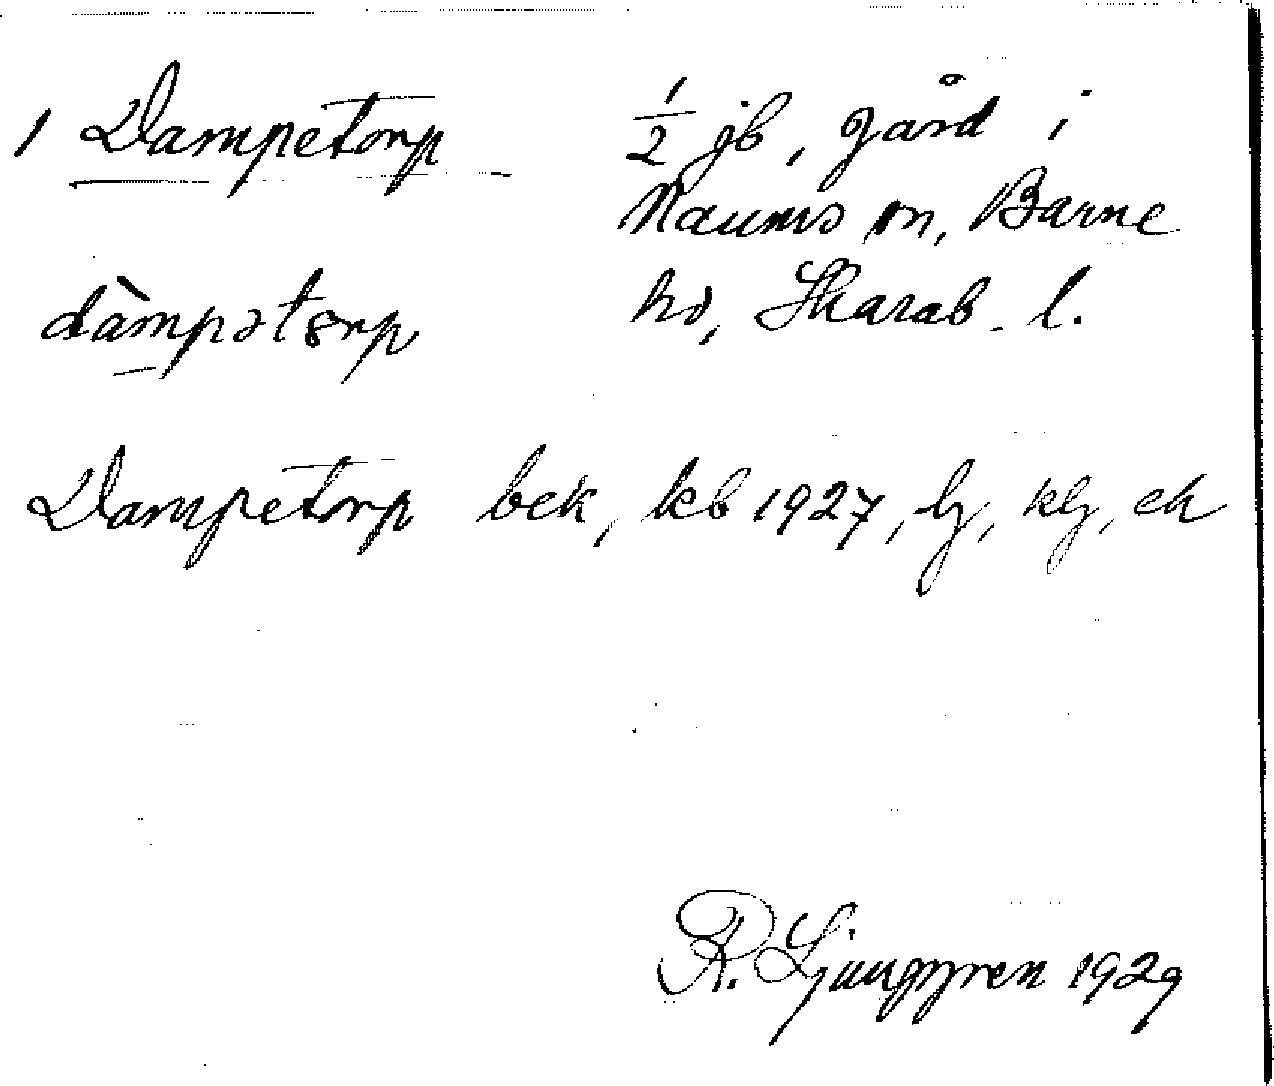 1 Dampetorp ½ jb, gård i
Naums sn, Barne
hd, Skarab. l.
dàmpətɞrp
Dampetorp bek, kb 1927, lj, klj, ek
R. Ljunggren 1929